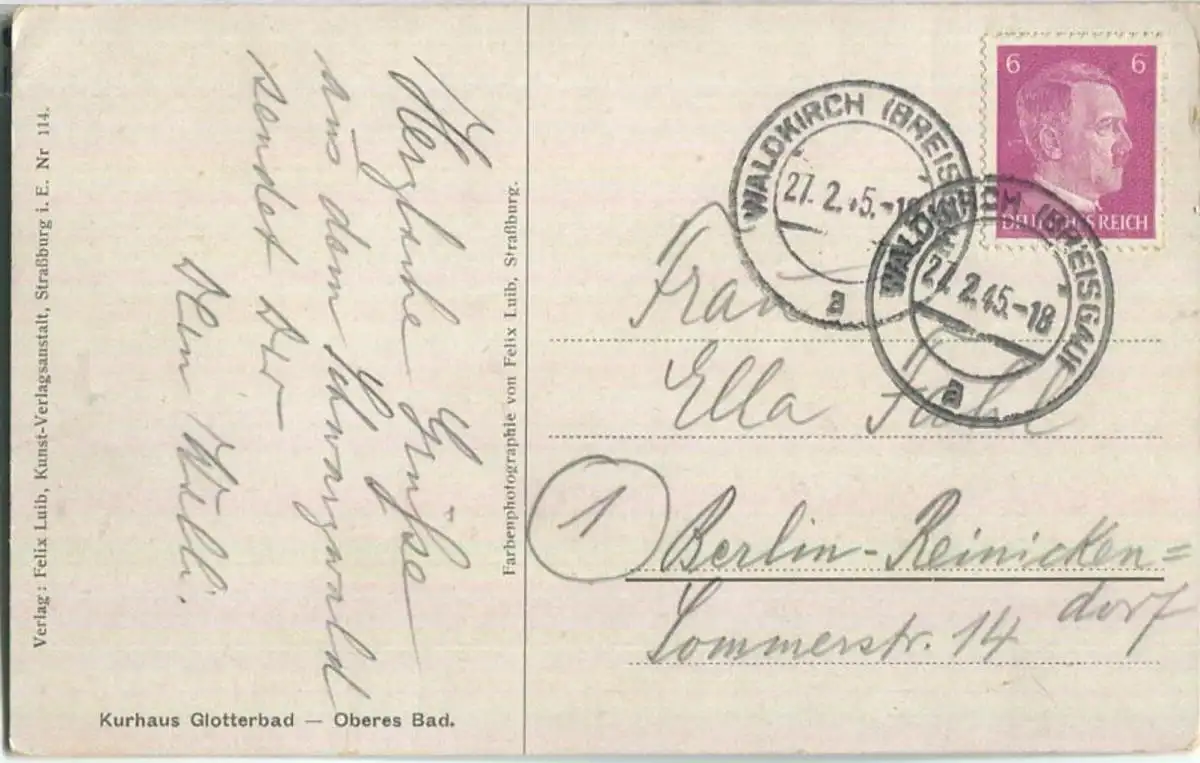 Verlag: Felix Luib, Kunst-Verlagsanstalt, Straßburg i. E. Nr 114.
Herzliche Grüße
aus dem Schwarzwald
sendet Dir
Dein Willi.
Kurhaus Glotterbad — Oberes Bad.
Farbenphotographie von Felix Luib, Straßburg.
6 6
DEUTSCHES REICH
WALDKIRCH (BREISGAU)
27. 2. 45.-18
a
WALDKIRCH (BREISGAU)
27. 2. 45.-18
a
Frau
Ella
1
Berlin-Reinicken=
dorf
Sommerstr. 14